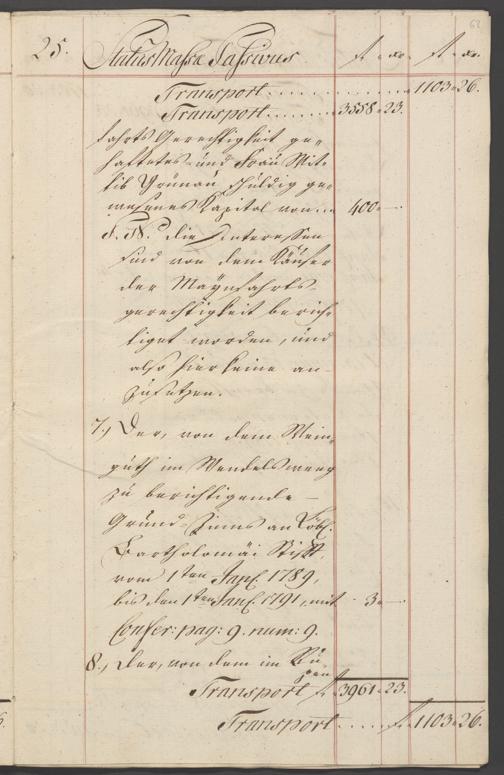 62
25. Status Massæ Passivus. fl. xr. fl. xr.
Transport 1103. 26.
Transport 3558. 23.
fahrts Gerechtigkeit ge-
haftetes und Frau Wit-
tib Grunau schuldig ge-
wesenes Kapital von 400. —
P. N. die Interessen
sind von dem Käufer
der Maynfahrts-
gerechtigkeit berich-
tiget worden, und
also hier keine an-
zusetzen.
7.) Der, von dem Wein-
guth im Wendelsweeg
zu berichtigende —
Grund-Zinns an Löbl.
Bartholomäi Stift,
vom 1ten Jan. 1789,
bis den 1ten Jan. 1791, mit 3. —
Confer: pag: 9. num: 9.
8.) Der, von dem im
Transport fl. 3961. 23.
Transport fl. 1103. 26.